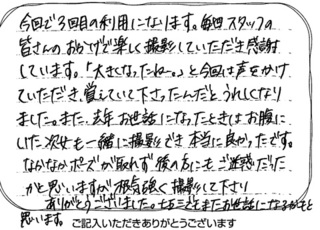 今回で3回目の利用になります。毎回スタッフの
皆さんのおかげで楽しく撮影していただき感謝
しています。「大きくなったねー。」と今回は声をかけ
ていただき、覚えていて下さったんだとうれしくなり
ました。また、去年お世話になったときはお腹に
いた次女も一緒に撮影でき本当に良かったです。
なかなかポーズが取れず後の方にもご迷惑だった
かと思いますが根気強く撮影して下さり
ありがとうございました。七五三でまたお世話になるかもと
思います。
ご記入いただきありがとうございます